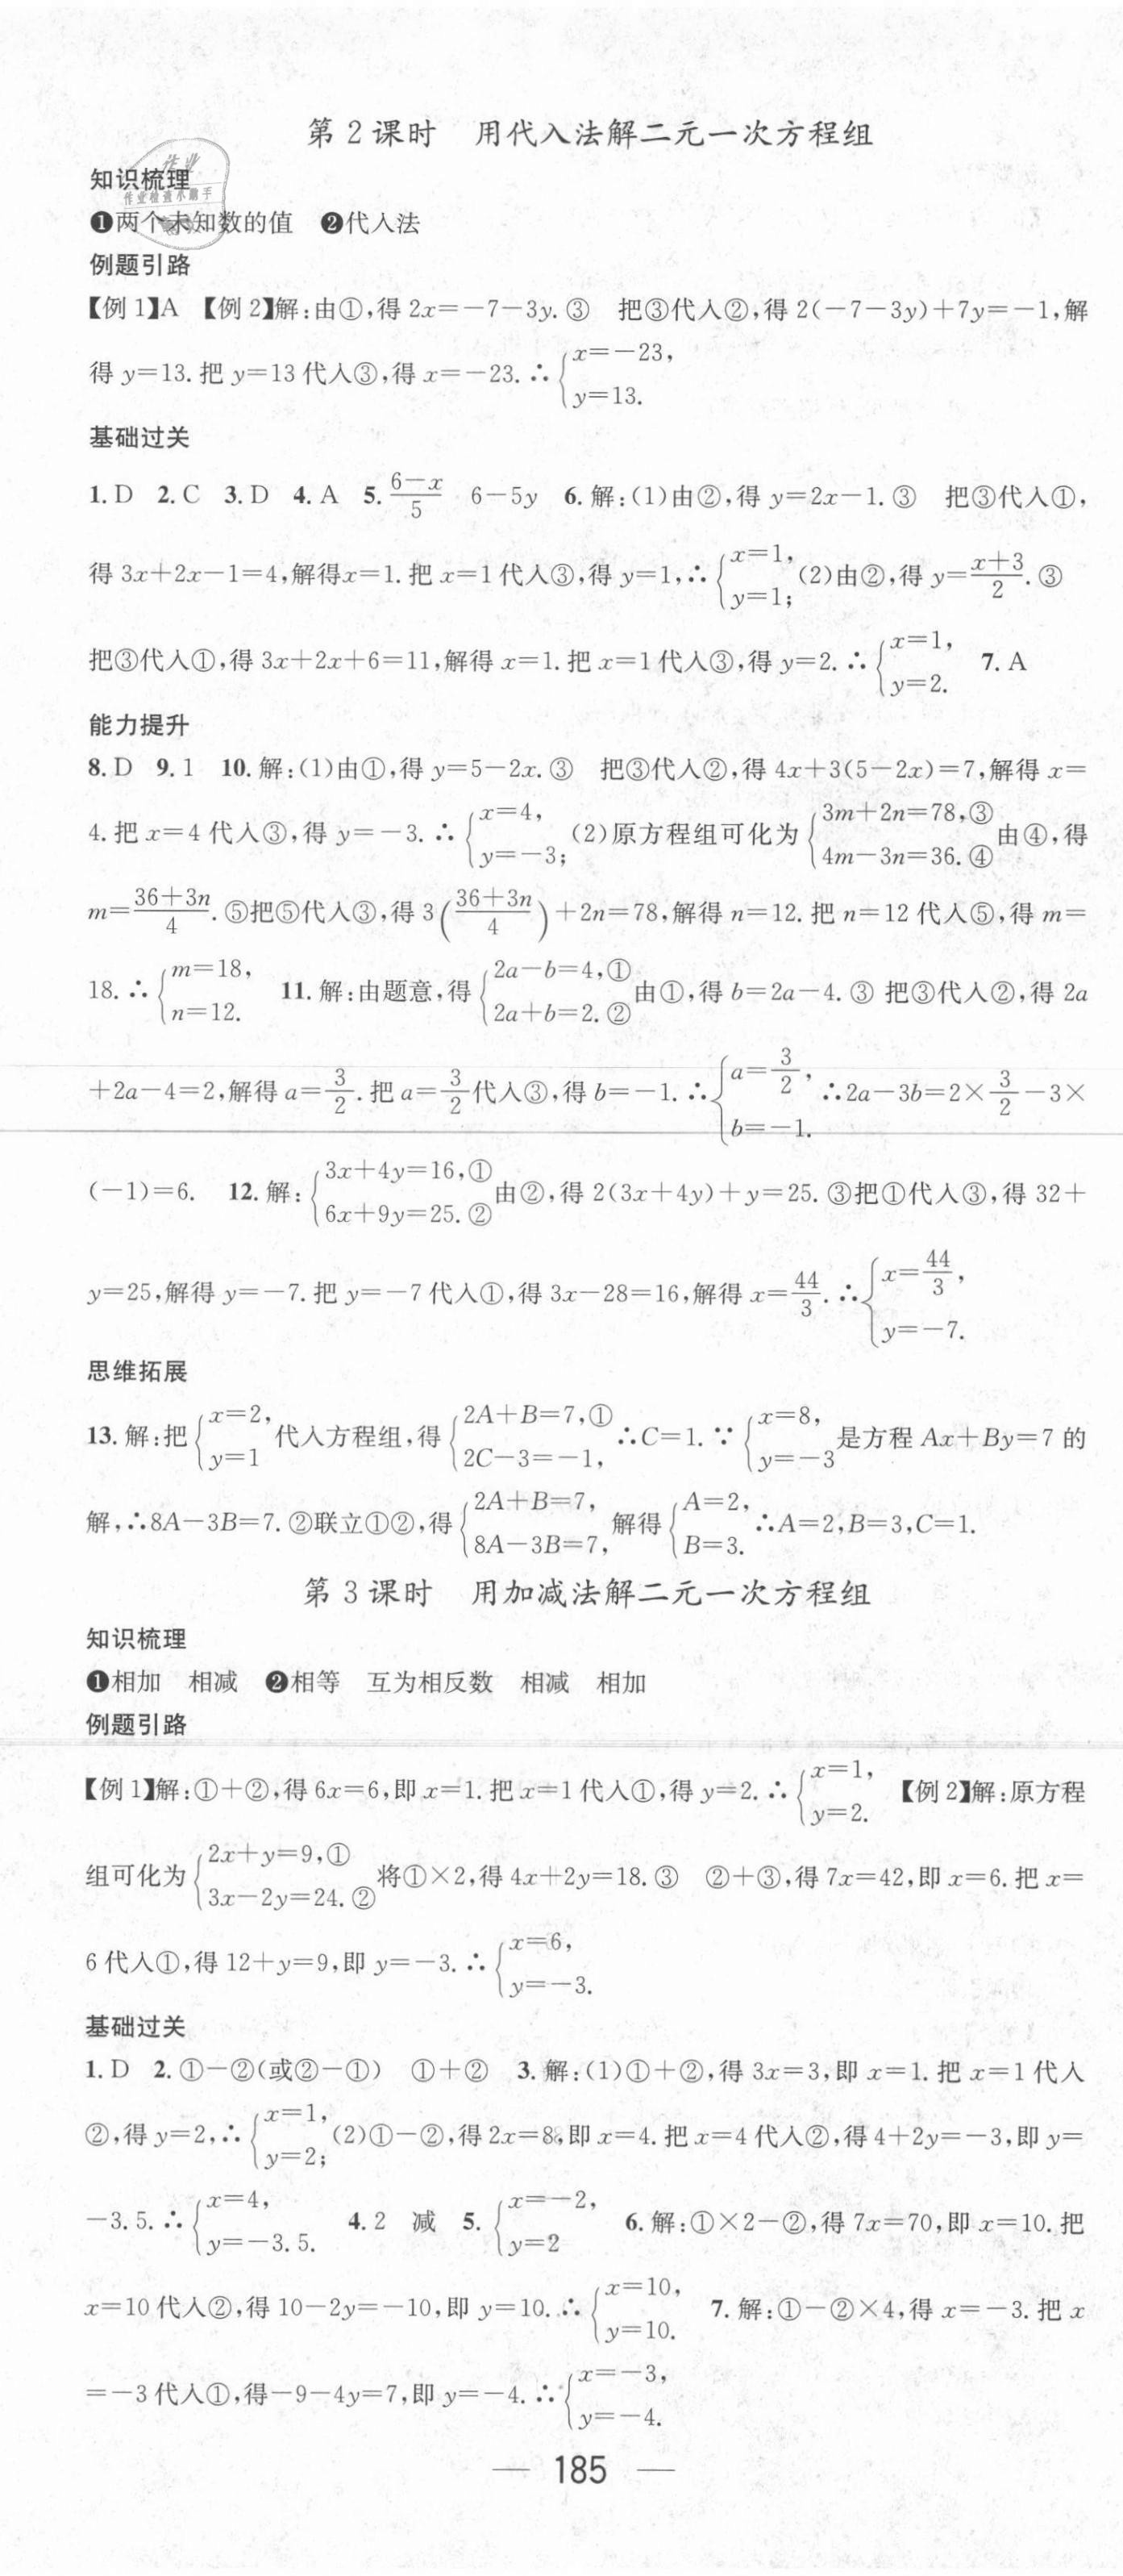 第2课时 用代入法解二元一次方程组
作业
作业检查小助手
知识梳理
❶两个未知数的值 ❷代入法
例题引路
【例1】A 【例2】解:由①,得2x=-7-3y.③ 把③代入②,得2(-7-3y)+7y=-1,解
得y=13.把y=13代入③,得x=-23.∴{x=-23, y=13.
基础过关
1.D 2.C 3.D 4.A 5.(6-x)/5 6-5y 6.解:(1)由②,得y=2x-1.③ 把③代入①,
得3x+2x-1=4,解得x=1.把x=1代入③,得y=1,∴{x=1, y=1; (2)由②,得y=(x+3)/2.③
把③代入①,得3x+2x+6=11,解得x=1.把x=1代入③,得y=2.∴{x=1, y=2. 7.A
能力提升
8.D 9.1 10.解:(1)由①,得y=5-2x.③ 把③代入②,得4x+3(5-2x)=7,解得x=
4.把x=4代入③,得y=-3.∴{x=4, y=-3; (2)原方程组可化为{3m+2n=78,③ 4m-3n=36.④ 由④,得
m=(36+3n)/4.⑤把⑤代入③,得3((36+3n)/4)+2n=78,解得n=12.把n=12代入⑤,得m=
18.∴{m=18, n=12. 11.解:由题意,得{2a-b=4,① 2a+b=2.② 由①,得b=2a-4.③ 把③代入②,得2a
+2a-4=2,解得a=3/2.把a=3/2代入③,得b=-1.∴{a=3/2, b=-1. ∴2a-3b=2×3/2-3×
(-1)=6. 12.解:{3x+4y=16,① 6x+9y=25.② 由②,得2(3x+4y)+y=25.③把①代入③,得32+
y=25,解得y=-7.把y=-7代入①,得3x-28=16,解得x=44/3.∴{x=44/3, y=-7.
思维拓展
13.解:把{x=2, y=1 代入方程组,得{2A+B=7,① 2C-3=-1, ∴C=1.∵{x=8, y=-3 是方程Ax+By=7的
解,∴8A-3B=7.②联立①②,得{2A+B=7, 8A-3B=7, 解得{A=2, B=3. ∴A=2,B=3,C=1.
第3课时 用加减法解二元一次方程组
知识梳理
❶相加 相减 ❷相等 互为相反数 相减 相加
例题引路
【例1】解:①+②,得6x=6,即x=1.把x=1代入①,得y=2.∴{x=1, y=2. 【例2】解:原方程
组可化为{2x+y=9,① 3x-2y=24.② 将①×2,得4x+2y=18.③ ②+③,得7x=42,即x=6.把x=
6代入①,得12+y=9,即y=-3.∴{x=6, y=-3.
基础过关
1.D 2.①-②(或②-①) ①+② 3.解:(1)①+②,得3x=3,即x=1.把x=1代入
②,得y=2,∴{x=1, y=2; (2)①-②,得2x=8,即x=4.把x=4代入②,得4+2y=-3,即y=
-3.5.∴{x=4, y=-3.5. 4.2 减 5.{x=-2, y=2 6.解:①×2-②,得7x=70,即x=10.把
x=10代入②,得10-2y=-10,即y=10.∴{x=10, y=10. 7.解:①-②×4,得x=-3.把x
=-3代入①,得-9-4y=7,即y=-4.∴{x=-3, y=-4.
— 185 —